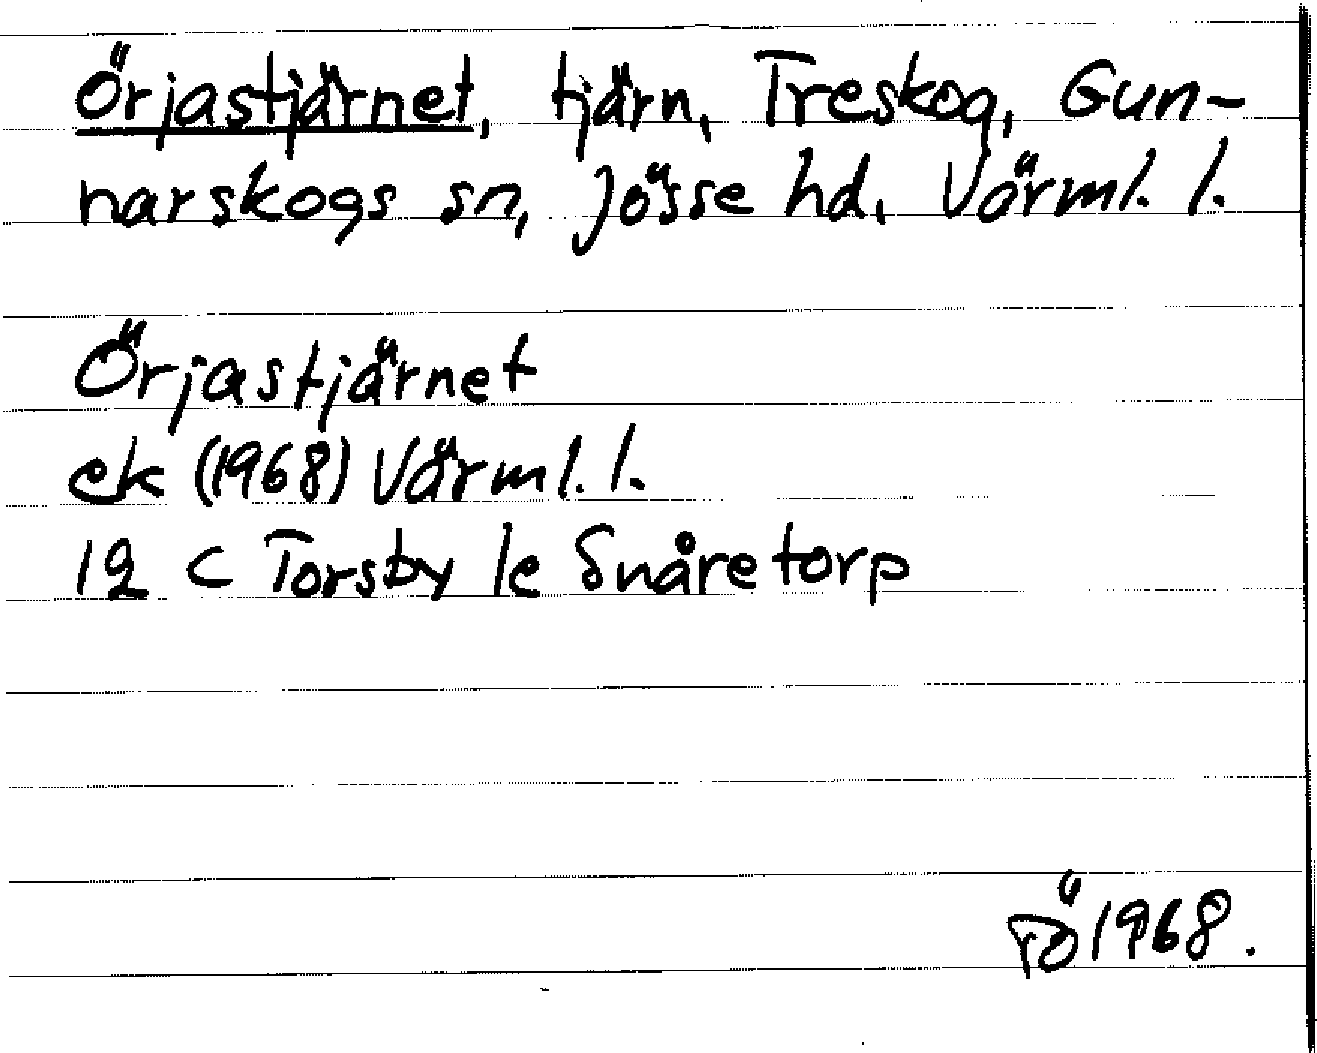 Örjastjärnet, tjärn, Treskog, Gun-
narskogs sn, Jösse hd, Värml. l.
Örjastjärnet
ek (1968) Värml. l.
12 C Torsby 1e Snåretorp
1968.